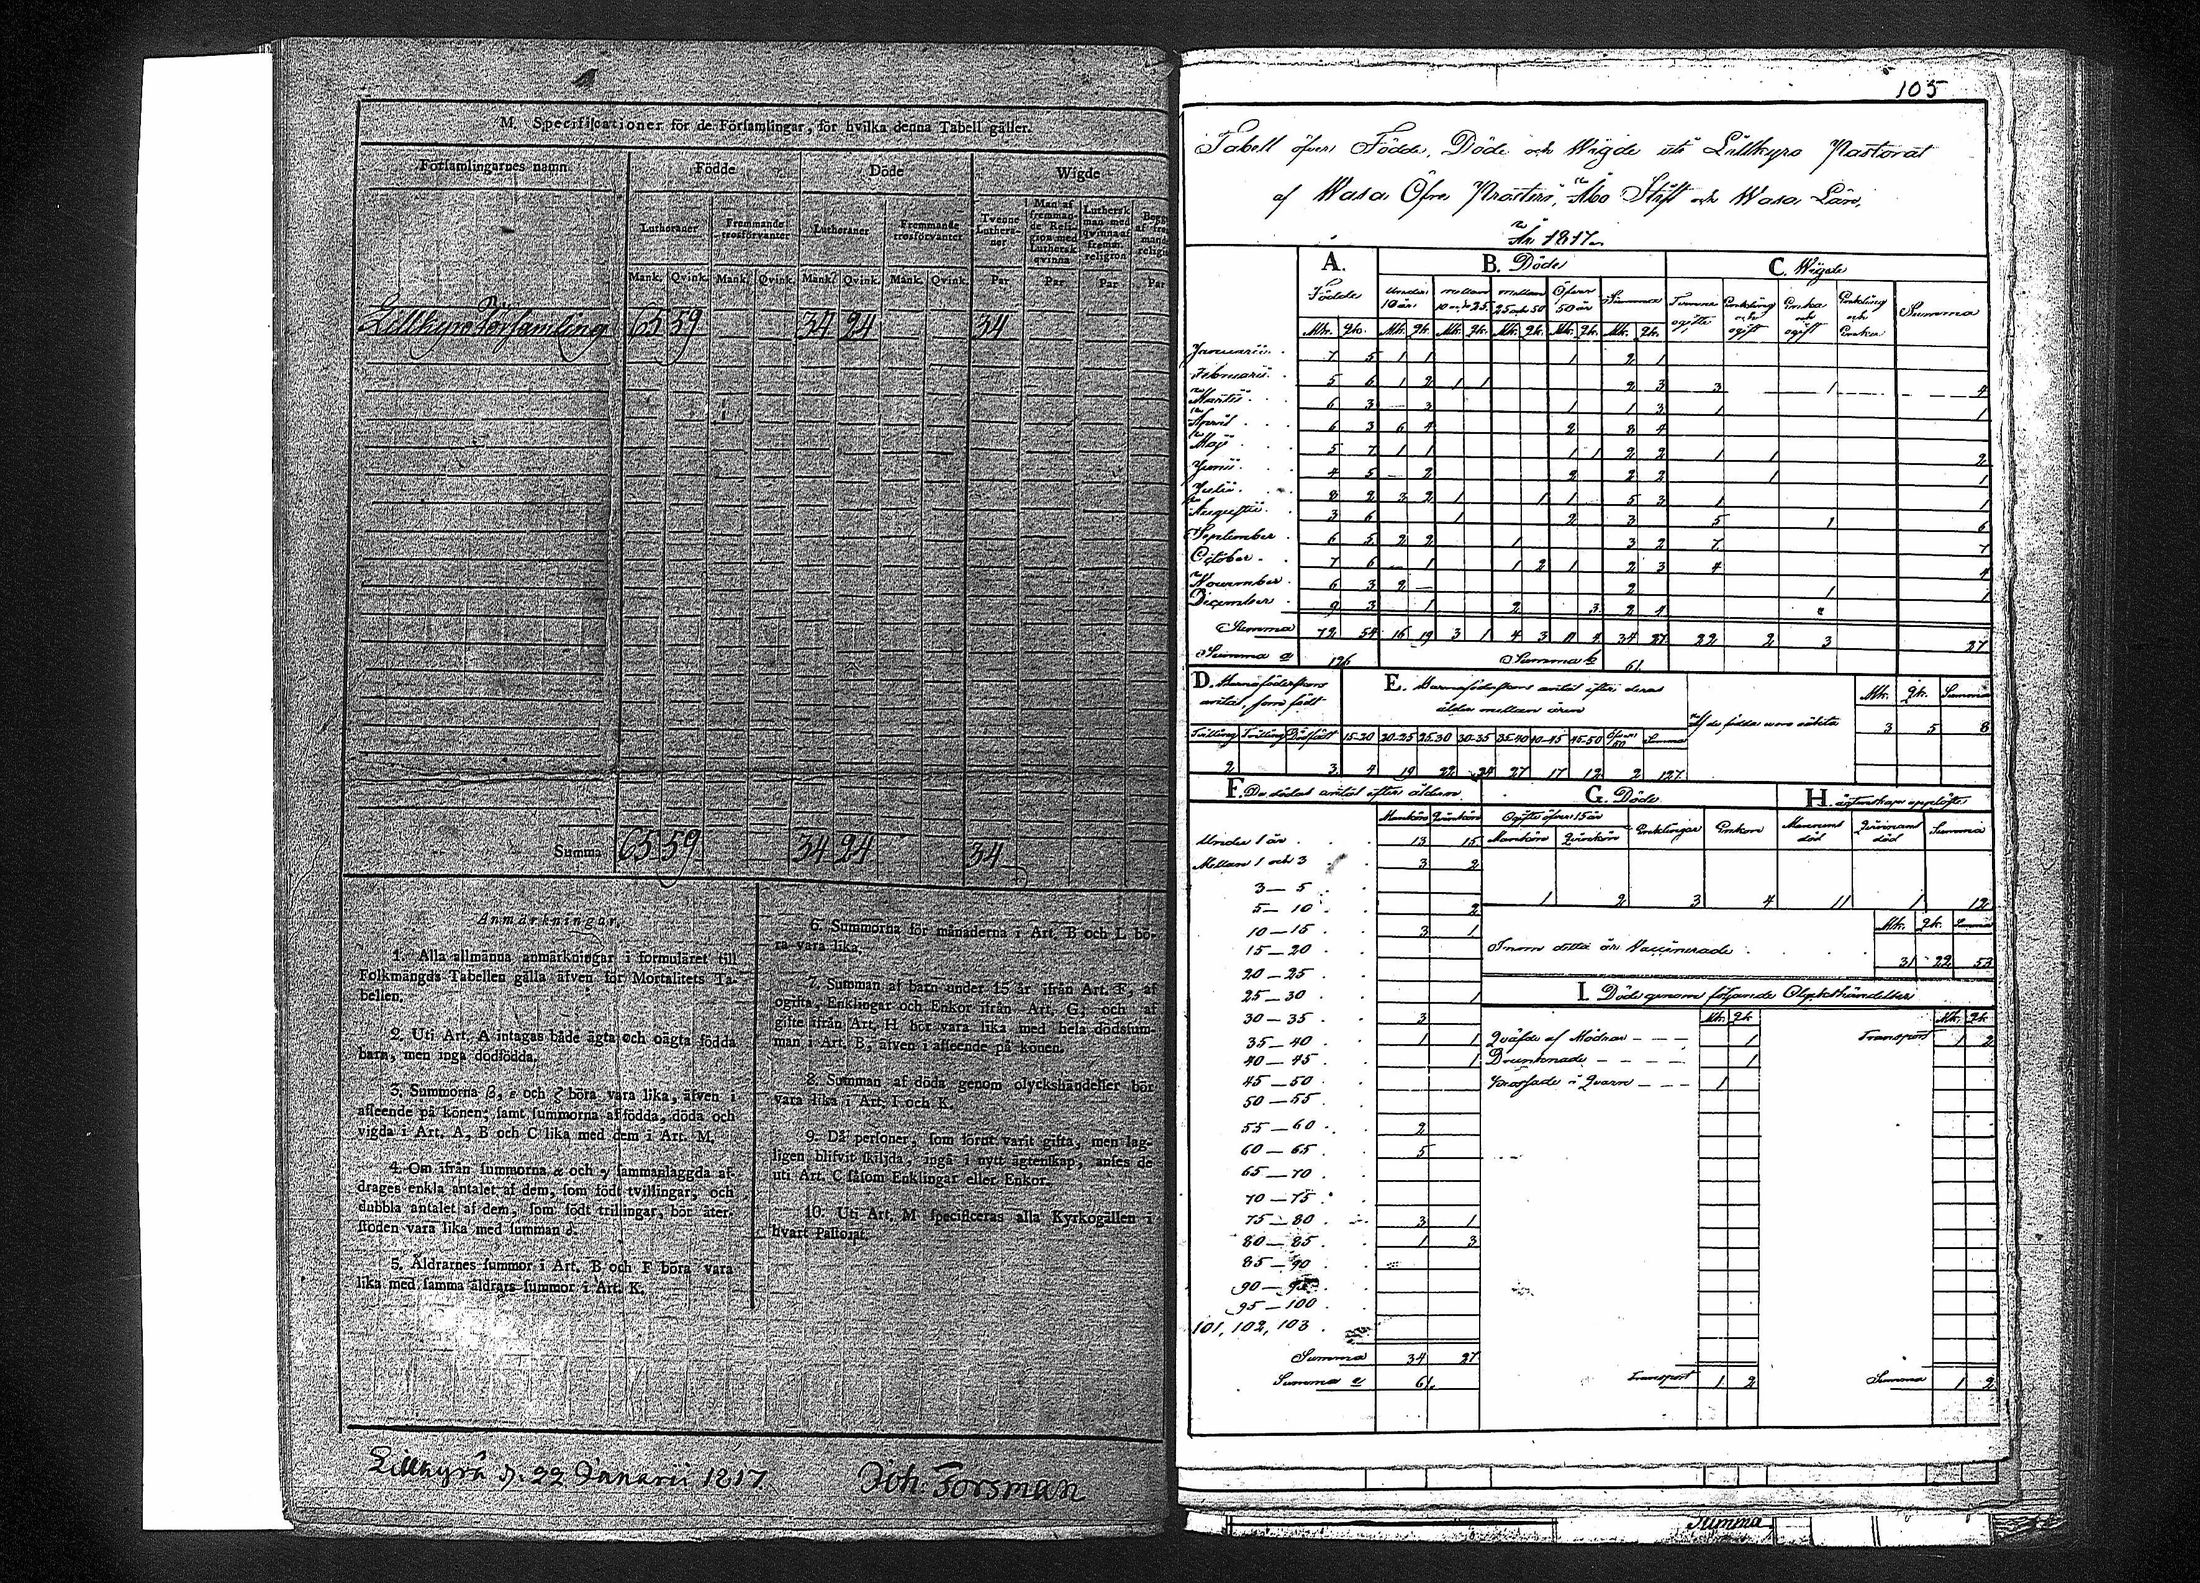 M. Specificationer för de Församlingar, för hvilka denna Tabell gäller.
Församlingarnes namn. Födde Döde Wigde
Lutheraner Fremmande trosförvanter Lutheraner Fremmande trosförvanter Tvenne Lutheraner Man af fremmande Religion med Luthersk qvinna Luthersk man med qvinna af fremm. religion
Mank. Qvink. Mank. Qvink. Mank. Qvink. Mank. Qvink. Par Par Par Par
Lillkyro församling 65 59 34 24 34
Summa 65 59 34 24 34
Anmärkningar.
1. Alla allmänna anmärkningar i formuläret till
Folkmängds Tabellen gälla äfven för Mortalitets Ta-
bellen.
2. Uti Art. A intagas både ägta och oägta födda
barn, men inga dödfödda.
3. Summorna β, ε och ζ böra vara lika, äfven i
afseende på könen; samt summorna af födda, döda och
vigda i Art. A, B och C lika med dem i Art. M.
4. Om ifrån summorna α och γ sammanlaggda af-
drages enkla antalet af dem, som födt tvillingar, och
dubbla antalet af dem, som födt trillingar, bör åter-
stoden vara lika med summan δ.
5. Åldrarnes summor i Art. B och F böra vara
lika med samma åldrars summor i Art. K.
6. Summorna för månaderna i Art. B och L bö-
ra vara lika.
7. Summan af barn under 15 år ifrån Art. F, af
ogifta, Enklingar och Enkor ifrån Art. G; och af
gifte ifrån Art. H bör vara lika med hela dödssum-
man i Art. B, äfven i afseende på könen.
8. Summan af döda genom olyckshändelser bör
vara lika i Art. I och K.
9. Då personer, som förut varit gifta, men lag-
ligen blifvit skiljda, ingå i nytt ägtenskap, anses de
uti Art. C såsom Enklingar eller Enkor.
10. Uti Art. M specificeras alla Kyrkogällen i
hvart Pastorat.
Lillkyrå d. 22 Januarii 1817.
Joh. Forsman
105
Tabell öfver Födde, Döde och Wigde uti Lillkyro Pastorat
af Wasa Öfre Prosteri, Åbo Stift och Wasa Län,
År 1817.
A. B. Döde C. Wigde
Födde Under 10 år. mellan 10 och 25. mellan 25 och 50 Öfver 50 år Summa Tvenne ogifte Enkling och ogift Enka och ogift Enkling och Enka Summa
Mk. Qk. Mk. Qk. Mk. Qk. Mk. Qk. Mk. Qk. Mk. Qk.
Januarii 7 5 1 1 1 2 1
Februarii 5 6 1 2 1 1 2 3 3 1 4
Martii 6 3 3 1 1 3 1 1
April 6 3 6 4 2 8 4
Maji 5 7 1 1 1 1 2 2 1 1 2
Junii 4 5 2 2 2 2 1 1
Julii 8 2 3 2 1 1 1 5 3 1 1
Augustii 3 6 1 2 3 5 1 6
September 6 5 2 2 1 3 2 7 7
October 7 6 1 1 2 1 2 3 4 4
November 6 3 2 2 1 1
December 9 3 1 2 3 2 4
Summa 72 54 16 19 3 1 4 3 11 4 34 27 22 2 3 27
Summa α 126 Summa β 61
D. Barnsföderskors antal, som födt E. Barnsföderskors antal efter deras ålder mellan åren Af de födda voro oäkta Mk. Qk. Summa
3 5 8
Tvilling Trilling Dödfödt 15-20 20-25 25-30 30-35 35-40 40-45 45-50 Öfver 50 Summa
2 3 4 19 22 24 27 17 12 2 127
F. De dödas antal efter åldern G. Döde H. ägtenskap upplöste
Mankön Qvinkön Ogifte öfver 15 år Enklingar Enkor Mannens död Qvinnans död Summa
Mankön Qvinkön
Under 1 år 13 15
Mellan 1 och 3 3 2
3 — 5
5 — 10 2 1 2 3 4 11 1 12
10 — 15 3 1 Mk. Qk. Summa
15 — 20 Inom detta år Vaccinerade 31 22 53
20 — 25
25 — 30 1 I. Döde genom följande Olyckshändelser
30 — 35 3 Mk. Qk. Mk. Qk.
35 — 40 1 1 Qväfde af Mödrar 1 Transport 1 2
40 — 45 1 Drunknade 1
45 — 50 Krossade i Qvarn 1
50 — 55
55 — 60 2
60 — 65 5
65 — 70
70 — 75
75 — 80 3 1
80 — 85 1 3
85 — 90
90 — 95
95 — 100
101, 102, 103
Summa 34 27
Summa 61. Transport 1 2 Summa 1 2
Summa